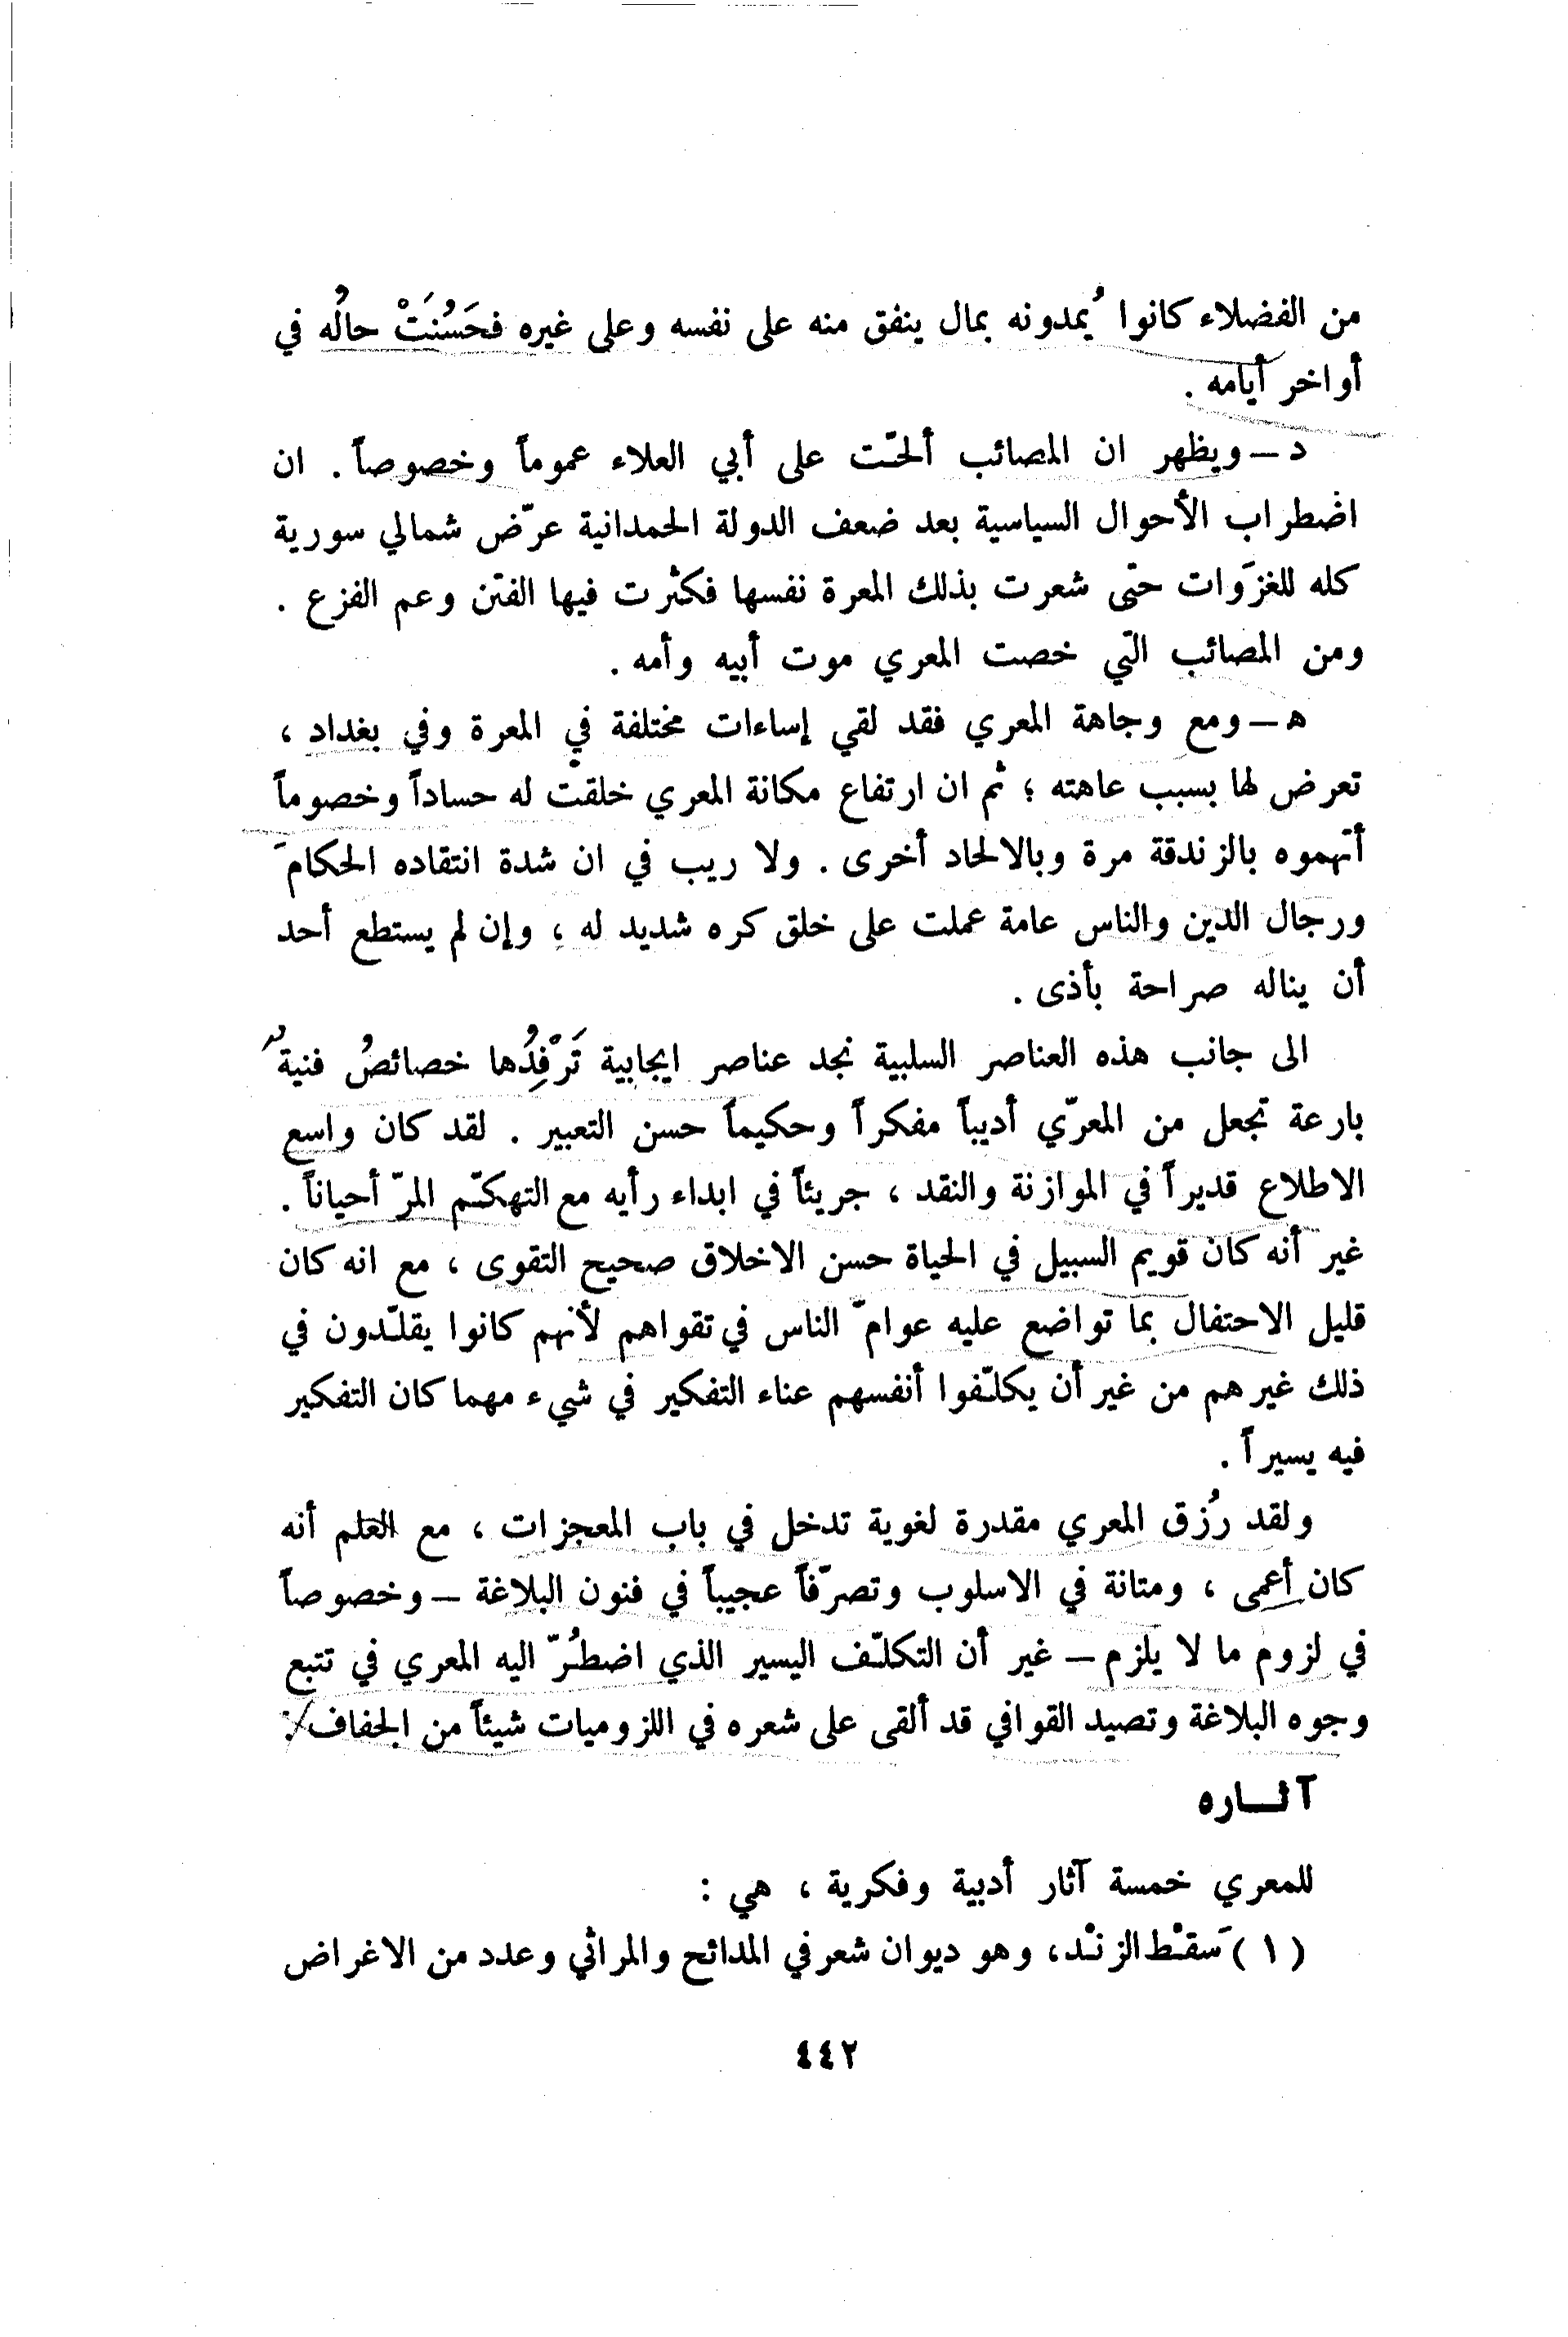 من الفضلاء كانوا يُمدونه بمال ينفق منه على نفسه وعلى غيره فحَسُنَتْ حالُه في
أواخر أيامه .
د – ويظهر ان المصائب ألحّت على أبي العلاء عموماً وخصوصاً . ان
اضطراب الأحوال السياسية بعد ضعف الدولة الحمدانية عرّض شمالي سورية
كله للغزَوات حتى شعرت بذلك المعرة نفسها فكثرت فيها الفتن وعم الفزع .
ومن المصائب التي خصت المعري موت أبيه وأمه .
ه – ومع وجاهة المعري فقد لقي إساءات مختلفة في المعرة وفي بغداد ،
تعرض لها بسبب عاهته ؛ ثم ان ارتفاع مكانة المعري خلقت له حساداً وخصوماً
أتهموه بالزندقة مرة وبالالحاد أخرى . ولا ريب في ان شدة انتقاده الحكامَ
ورجال الدين والناس عامة عملت على خلق كره شديد له ، وإن لم يستطع أحد
أن يناله صراحة بأذى .
الى جانب هذه العناصر السلبية نجد عناصر ايجابية تَرْفِدُها خصائصُ فنيةٌ
بارعة تجعل من المعرّي أديباً مفكراً وحكيماً حسن التعبير . لقد كان واسع
الاطلاع قديراً في الموازنة والنقد ، جريئاً في ابداء رأيه مع التهكّم المرّ أحياناً .
غير أنه كان قويم السبيل في الحياة حسن الاخلاق صحيح التقوى ، مع انه كان
قليل الاحتفال بما تواضع عليه عوامّ الناس في تقواهم لأنهم كانوا يقلّدون في
ذلك غيرهم من غير أن يكلّفوا أنفسهم عناء التفكير في شيء مهما كان التفكير
فيه يسيراً .
ولقد رُزق المعري مقدرة لغوية تدخل في باب المعجزات ، مع العلم أنه
كان أعمى ، ومتانة في الاسلوب وتصرّفاً عجيباً في فنون البلاغة – وخصوصاً
في لزوم ما لا يلزم – غير أن التكلّف اليسير الذي اضطُرّ اليه المعري في تتبع
وجوه البلاغة وتصيد القوافي قد ألقى على شعره في اللزوميات شيئاً من الجفاف .
آثــاره
للمعري خمسة آثار أدبية وفكرية ، هي :
(١) سَقْط الزنْد، وهو ديوان شعر في المدائح والمراثي وعدد من الاغراض
٤٤٢